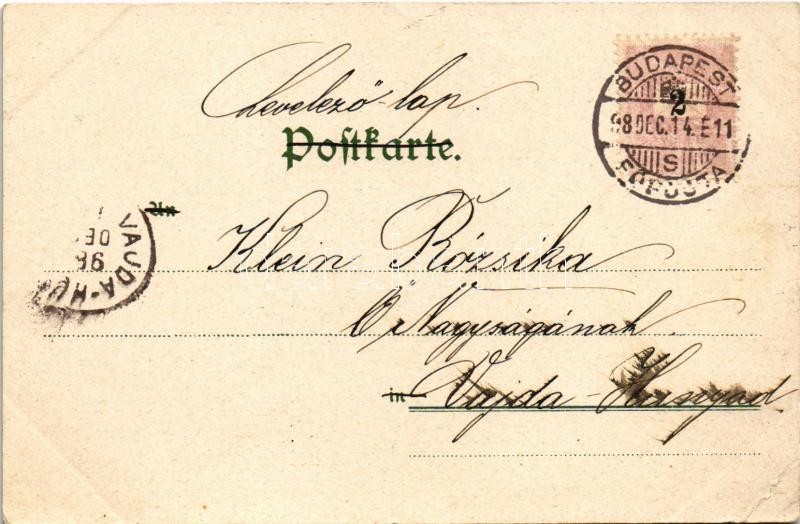 Levelező-lap.
Postkarte.
2
BUDAPEST
98 DEC. 14. E 11
S
FŐPOSTA
VAJDA-HU
DE
98
An
Klein Rózsika
Ő Nagyságának.
in Vajda-Hunyad